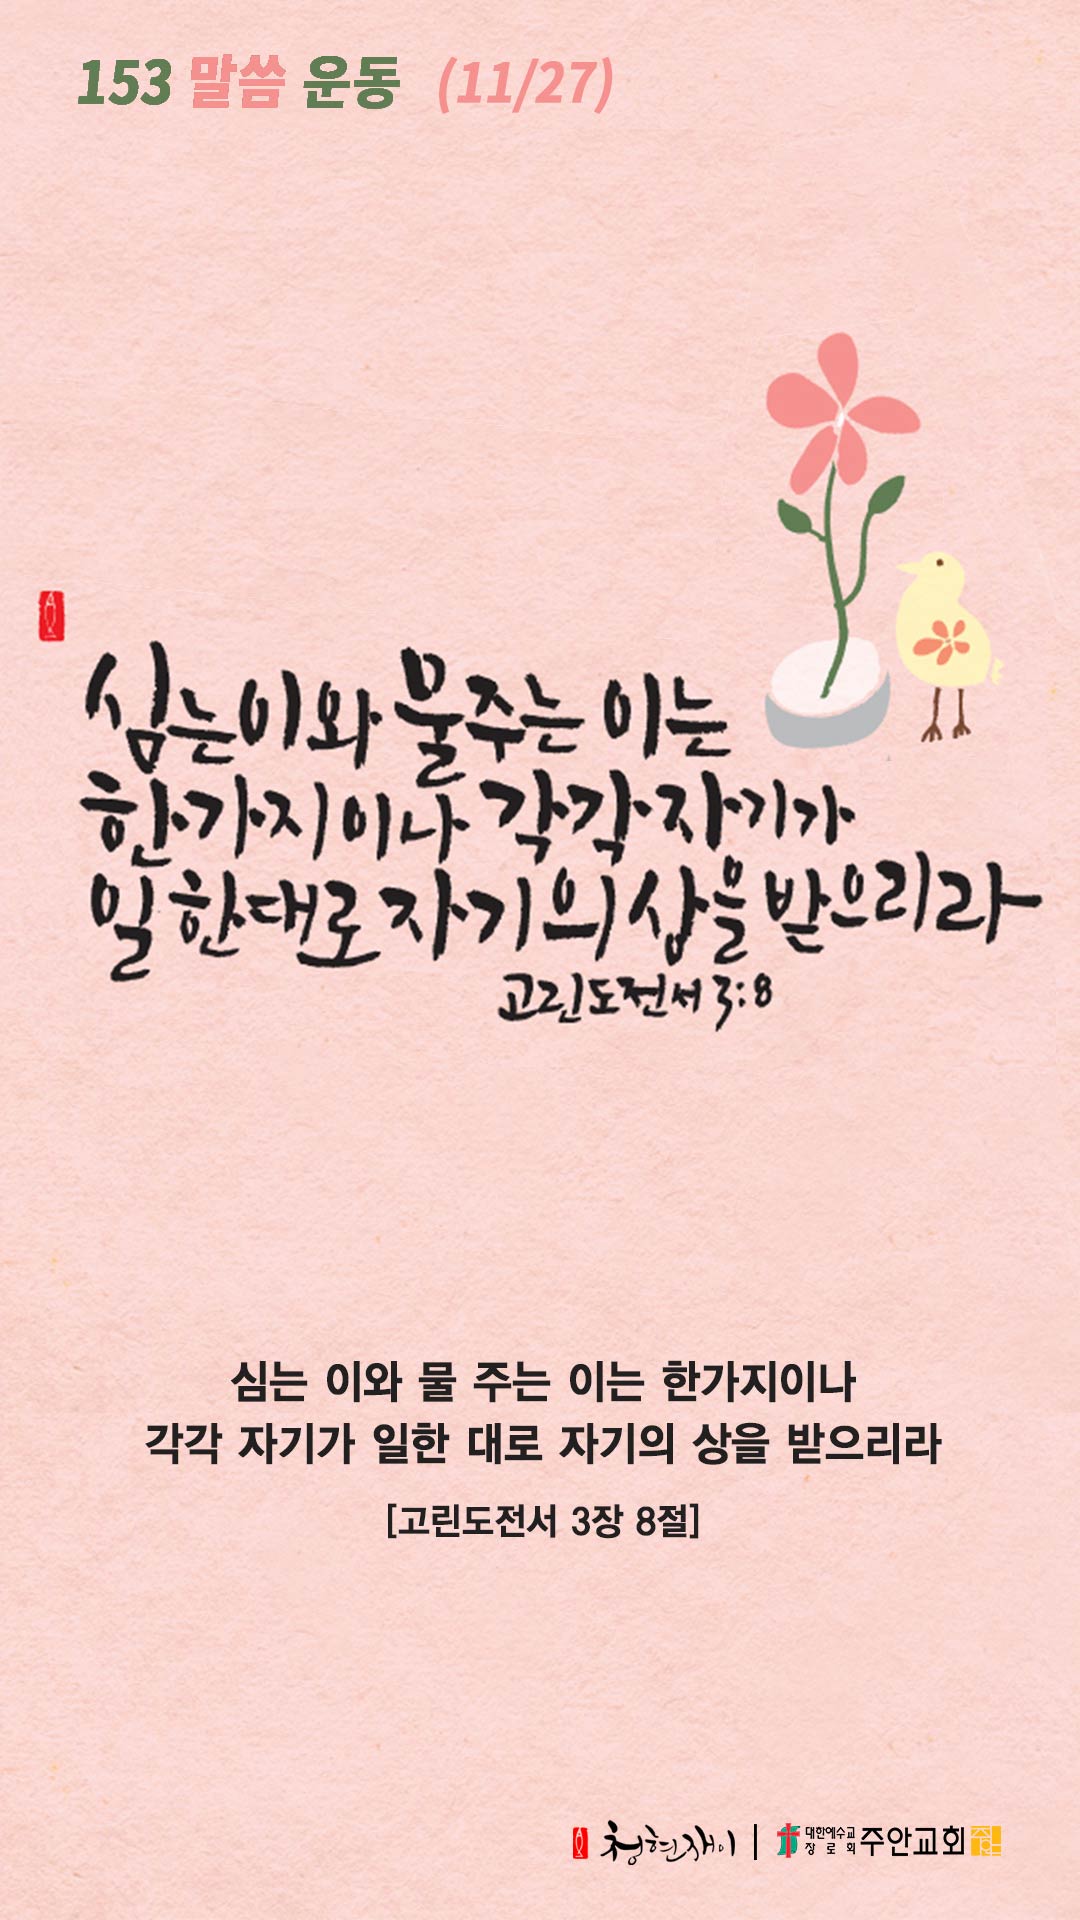 153 말씀 운동 (11/27)
심는이와 물주는 이는
한가지이나 각각 자기가
일한대로 자기의 상을 받으리라
고린도전서 3:8
심는 이와 물 주는 이는 한가지이나
각각 자기가 일한 대로 자기의 상을 받으리라
[고린도전서 3장 8절]
청현재이 | 대한예수교장로회 주안교회